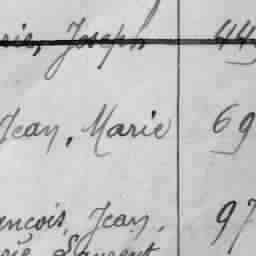 rie, Joseph 44
Jean, Marie 69
ançois, Jean, 97
rie Laurent